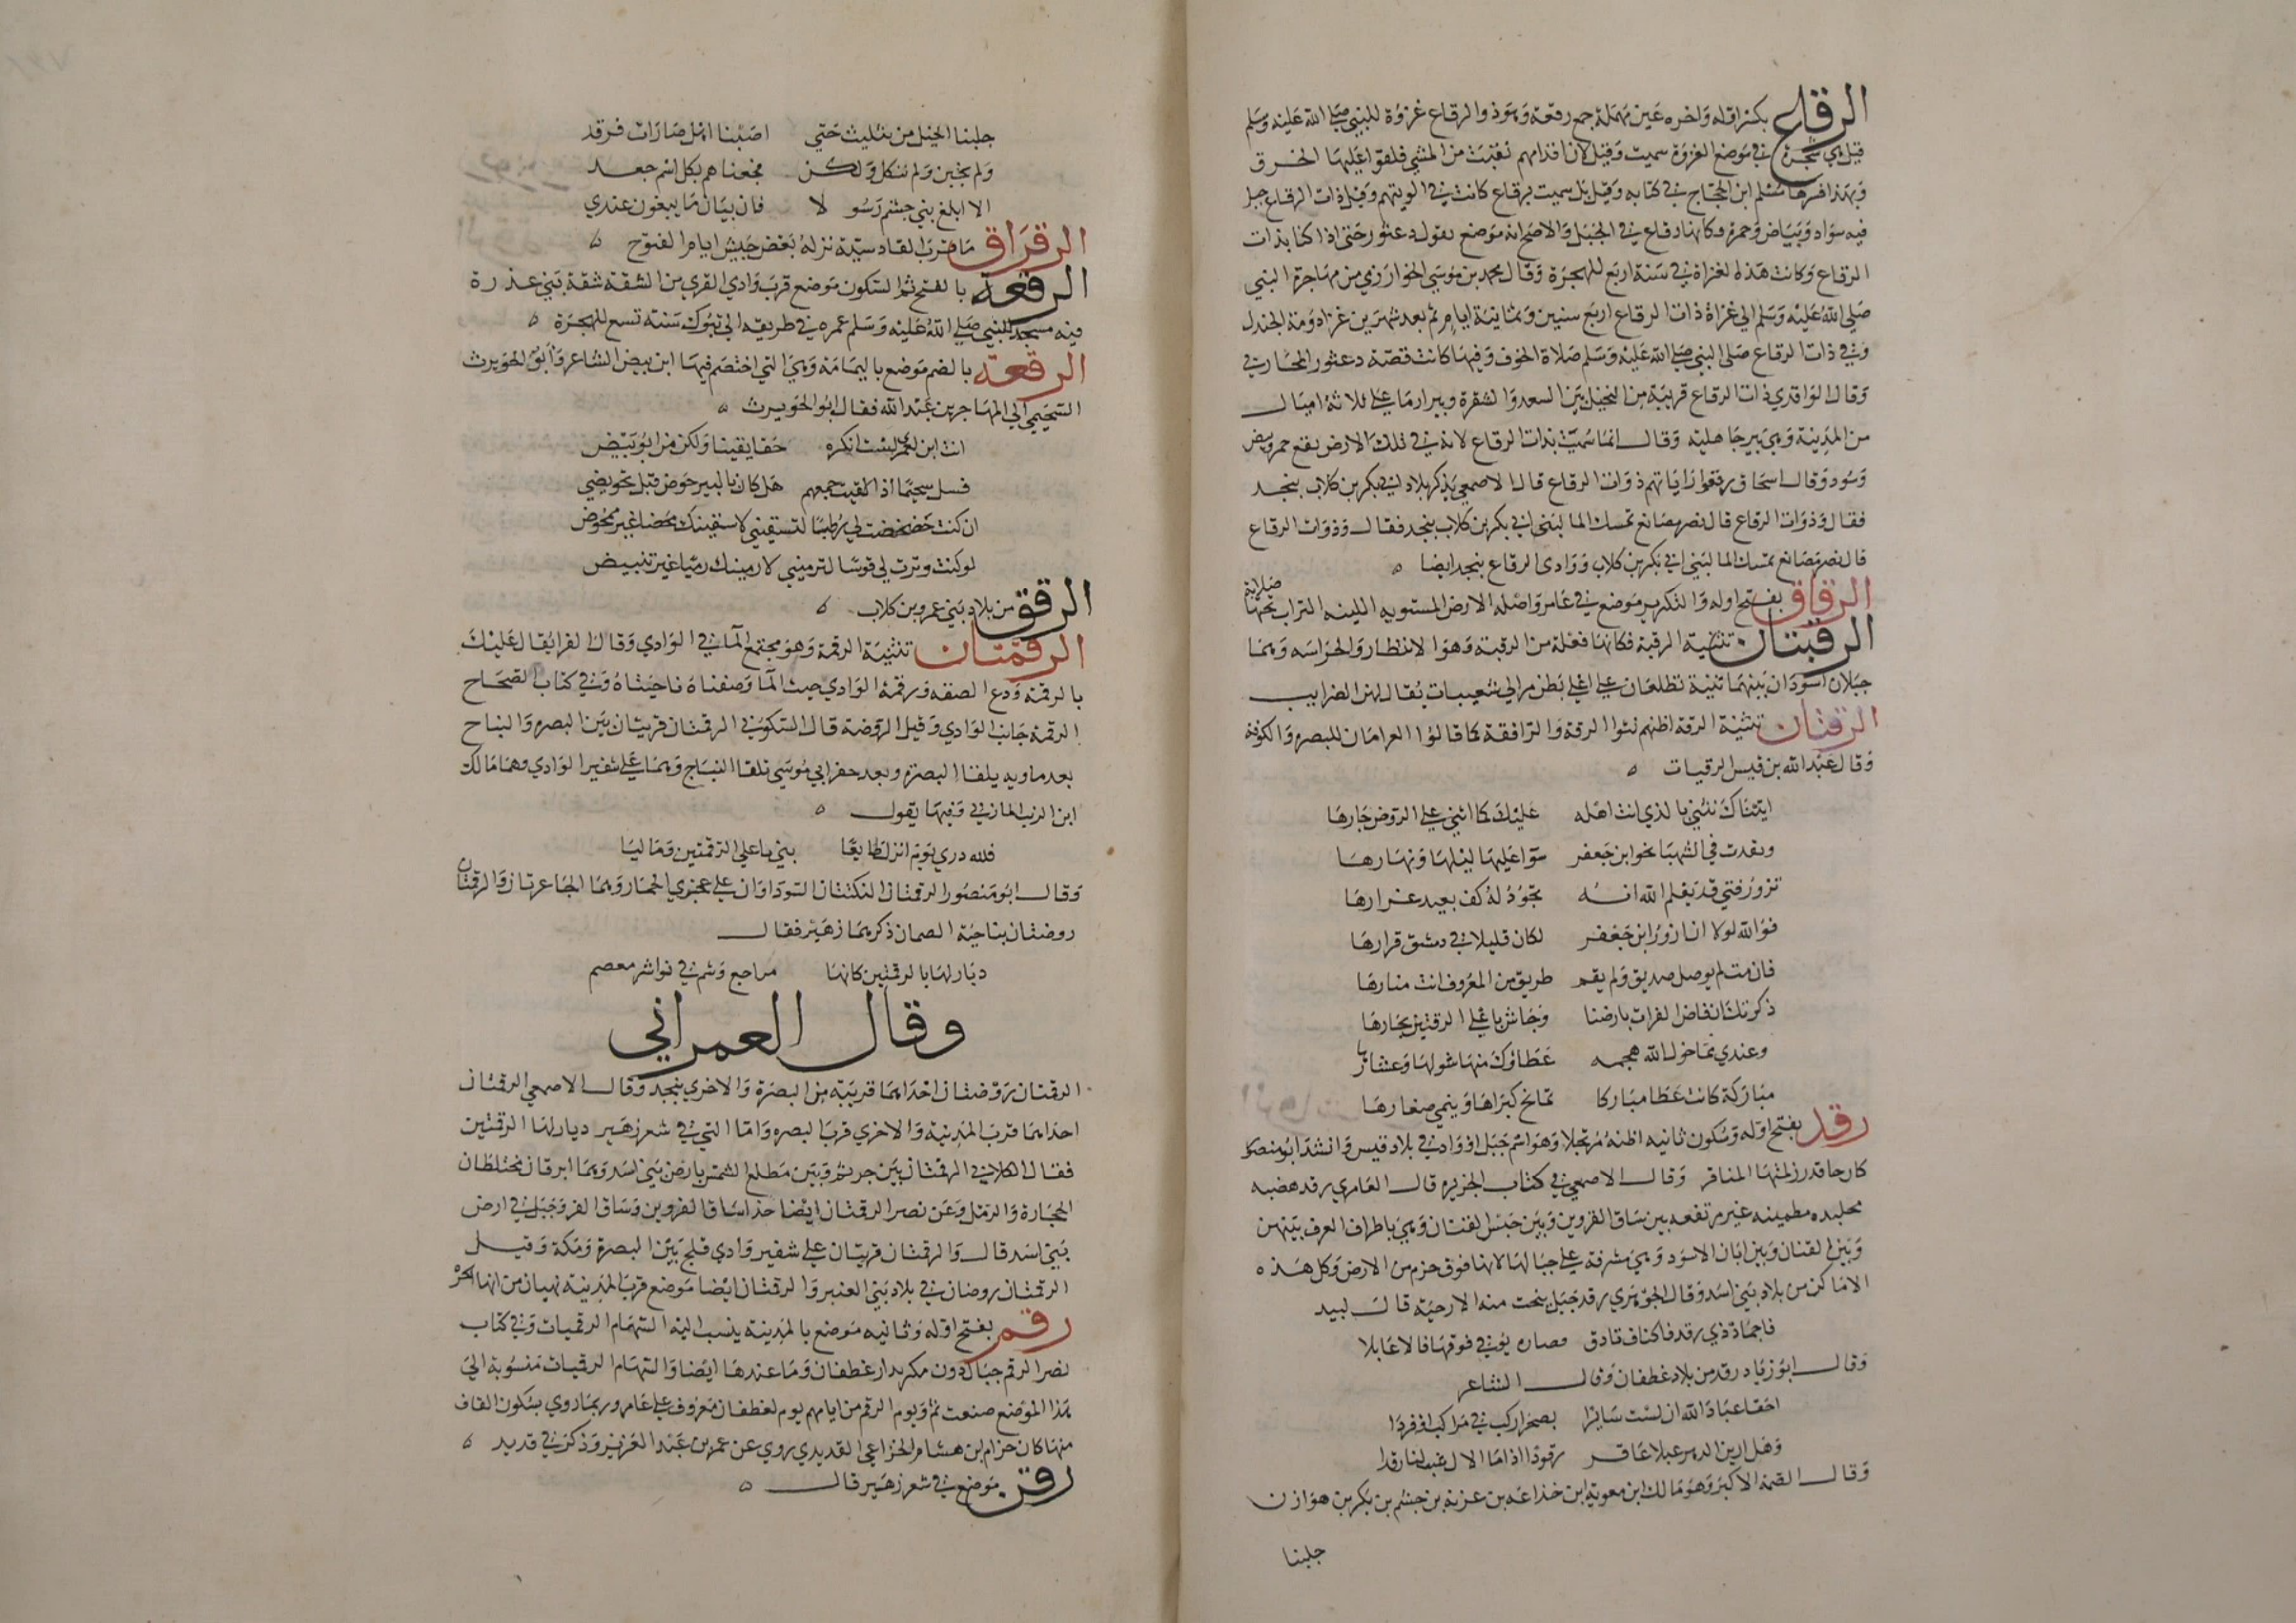 الرقاع بكسر اوله واخره عين مهملة جمع رقعة وهو ذو الرقاع غزوة للنبي صلى الله عليه وسلم
قيل هي شجرة في موضع الغزوة سميت وقيل لان اقدامهم نقبت من المشي فلفوا عليها الخرق
وبهذا فسرها مسلم ابن الحجاج في كتابه وقيل بل سميت برقاع كانت في الويتهم وقيل ذات الرقاع جبل
فيه سواد وبياض وحمرة فكانها رقاع في الجبل والاصح انه موضع يقول دعثور حتى اذا كنا بذات
الرقاع وكانت هذه الغزاة في سنة اربع للهجرة وقال محمد بن موسى الخوارزمي من مهاجرة النبي
صلى الله عليه وسلم الى غزاة ذات الرقاع اربع سنين وثمانية ايام ثم بعد شهرين غزا دومة الجندل
وفي ذات الرقاع صلى النبي صلى الله عليه وسلم صلاة الخوف وفيها كانت قصة دعثور المحاربي
وقال الواقدي ذات الرقاع قريبة من النخيل بين السعد والشقرة وبير ارما على ثلاثة اميال
من المدينة وهي بير جاهلية وقال انما سميت بذات الرقاع لانه في تلك الارض بقع حمر وبيض
وسود وقال اسحاق رقعوا راياتهم ذوات الرقاع قال الاصمعي يذكر بلاد ابي بكر بن كلاب بنجد
فقال وذوات الرقاع قال نصر مصانع تمسك الما لبني ابي بكر بن كلاب بنجد فقال وذوات الرقاع
قال نصر مصانع تمسك الما لبني ابي بكر بن كلاب ووادي الرقاع بنجد ايضا
الرقاق بفتح اوله والتكرير موضع في عامر واصله الارض المستويه اللينه التراب تحتها صلابة
الرقبتان تثنية الرقبة فكانها فعلة من الرقبة وهو الانتظار والحراسه وهما
جبلان اسودان بينهما ثنية تطلعان على اعلى بطن مر الى شعيبات يقال لهن الضرايب
الرقتان تثنية الرقة اظنهم ثنوا الرقة والرافقة كما قالوا العراقان للبصره والكوفة
وقال عبد الله بن قيس الرقيات
اتيناك نثني بالذي انت اهله عليك كما اثنى على الروض جارها
وتقدت في الشهبا نحو ابن جعفر سوا عليها ليلها ونهارها
تزور فتى قد يعلم الله انه تجود له كف بعيد غرارها
فوالله لولا ان ازور ابن جعفر لكان قليلا في دمشق قرارها
فان مت لم يوصل صديق ولم يقم طريق من المعروف انت منارها
ذكرتك ان فاض الفرات بارضنا وجاش باعلى الرقتين بحارها
وعندي مما خول الله هجمه عطاؤك منها شولها وعشارها
مباركة كانت عطا مباركا تمانح كبراها وينمي صغارها
رقد بفتح اوله وسكون ثانيه اظنه مرتجلا وهو اسم جبل او واد في بلاد قيس وانشد ابو منصور
كارحا قد رزلمتها المناقر وقال الاصمعي في كتاب الجزيره قال العامري رقد هضبه
مطمينه غير مرتفعه بين ساق الفروين وبين حبس القنان وهي باطراف العرف بينهن
وبين القنان وبين ابان الاسود وهي مشرفة على جبالها لانها فوق حزم من الارض وكل هذه
الاماكن من بلاد بني اسد وقال الجوهري رقد جبل ينحت منه الارحية قال لبيد
فاجماد ذي رقد فاكناف ثادق فصاره يوفي فوقها فالاعابلا
وقال ابو زياد رقد من بلاد غطفان وقال الشاعر
احقا عباد الله ان لست سايرا بصحرا ركب في مراكب او فردا
وهل ارين الدهر عبلا عاقر رقودا اذا ما الال رقدا
وقال الصمة الاكبر وهو مالك ابن معوية ابن خذاعه بن عزيه بن جشم بن بكر بن هوازن
جلبنا
جلبنا الخيل من تثليث حتى اصبنا اهل صارات فرقد
ولم نجبن ولم ننكل ولكن فجعناهم بكل اشم جعد
الا ابلغ بني جشم رسولا فان بيان ما يبغون عندي
الرقراق ما قرب القادسية نزله بعض جيش ايام الفتوح
الرقعة بالفتح ثم السكون موضع قرب وادي القرى من الشقة شقة بني عذرة
فيه مسجد للنبي صلى الله عليه وسلم عمره في طريقه الى تبوك سنة تسع للهجرة
الرقعة بالضم موضع باليمامة وهي التي اختصم فيها ابن بيض الشاعر وابو الحويرث
السحيمي الى المهاجر بن عبد الله فقال ابو الحويرث
انت ابن لعمر لست انكره حقا يقينا ولكن من ابو بيض
فسل سحيما اذا لاقيت جمعهم هل كان بالبير حوض قبل تحويضي
ان كنت خضخضت لي وطبا لتسقيني لاسقينك محضا غير ممخوض
لو كنت وترت لي قوسا لترميني لارمينك رميا غير تنبيض
الرقق من بلاد بني عمرو بن كلاب
الرقمتان تثنية الرقمة وهو مجتمع الما في الوادي وقال الفرا يقال عليك
بالرقمة ودع الضفه ورقمة الوادي حيث الما وضفتاه ناحيتاه وفي كتاب الصحاح
الرقمة جانب الوادي وقيل الروضة قال السكوني الرقمتان قريتان بين البصره والنباج
بعد ماويه يلقا البصره وبعد حفر ابي موسى تلقا النباج وهما على شفير الوادي وهما مالك
ابن الريب المازني وفيها يقول
فلله دري يوم اترك طايعا بني باعلى الرقمتين وماليا
وقال ابو منصور الرقمتان النكتتان السوداوان على عجزي الحمار وهما الجاعرتان والرقمتان
روضتان بناحية الصمان ذكرهما زهير فقال
ديار لها بالرقمتين كانها مراجع وشم في نواشر معصم
وقال العمراني
الرقمتان روضتان احداهما قريبة من البصرة والاخرى بنجد وقال الاصمعي الرقمتان
احداهما قرب المدينة والاخرى قرب البصره واما التي في شعر زهير ديار لها الرقمتين
فقال الكلابي الرقمتان بين جرثم وبين مطلع الشمس بارض بني اسد وهما ابرقان مختلطان
الحجارة والرمل وعن نصر الرقمتان ايضا حذا ساق الفروين وساق الفرو جبل في ارض
بني اسد قال والرقمتان قريتان على شفير وادي فلج بين البصرة ومكة وقيل
الرقمتان روضان في بلاد بني العنبر والرقمتان ايضا موضع قرب المدينة نهيان من انها الحرة
رقم بفتح اوله وثانيه موضع بالمدينة ينسب اليه السهام الرقميات وفي كتاب
نصر الرقم جبال دون مكه بدار غطفان وما عندها ايضا والسهام الرقميات منسوبة الى
هذا الموضع صنعت ثم ويوم الرقم من ايامهم يوم لغطفان معروف على عامر وربما روي بسكون القاف
منها كان حزام ابن هشام الخزاعي القديدي روي عن عمر بن عبد العزيز وذكر في قديد
رقن موضع في شعر زهير قال